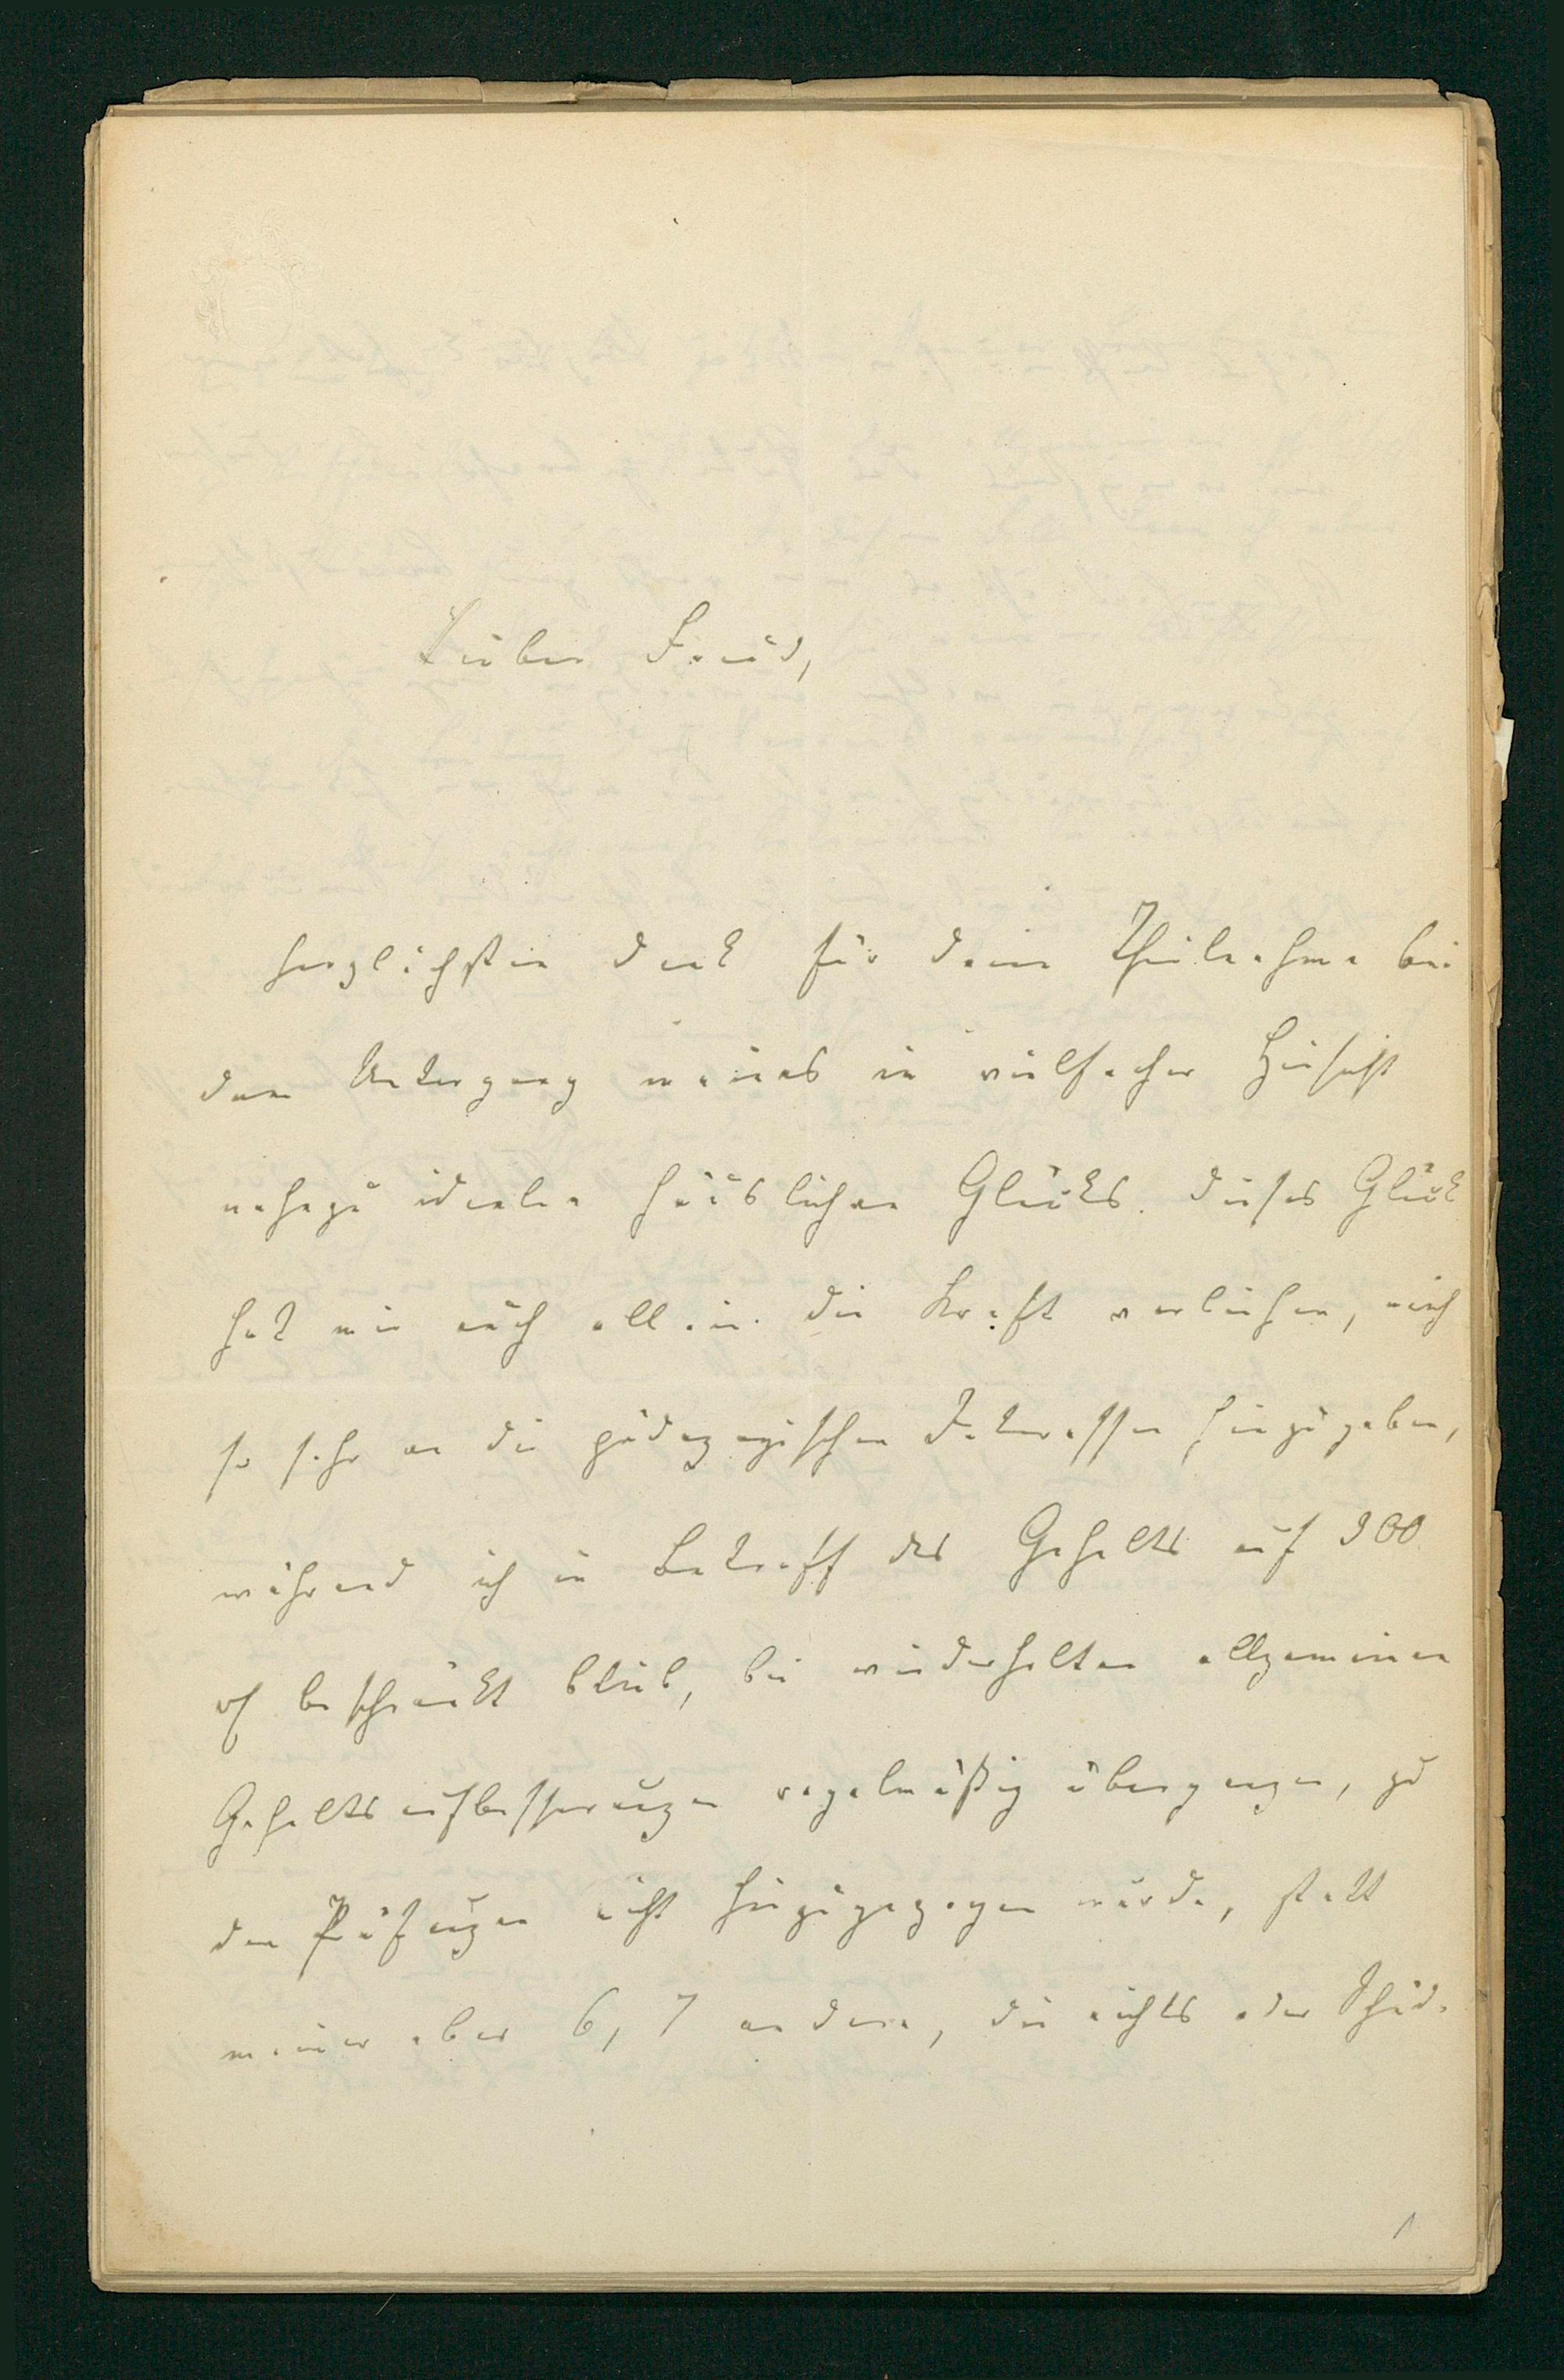 Lieber Freund,
herzlichsten Dank für Deine Theilnahme bei
dem Untergang meines in vielfacher Hinsicht
nahezu idealen häuslichen Glücks. Dieses Glück
hat mir auch allein die Kraft verliehen, mich
so sehr an die pädagogischen Interessen hinzugeben,
während ich in Betreff des Gehalts auf 900
beschränkt blieb, bei wiederholten allgemeinen
Gehaltsaufbesserungen regelmäßig übergangen, zu
den Prüfungen nicht hinzugezogen wurde, statt
meiner aber 6, 7 andere, die nichts oder
1